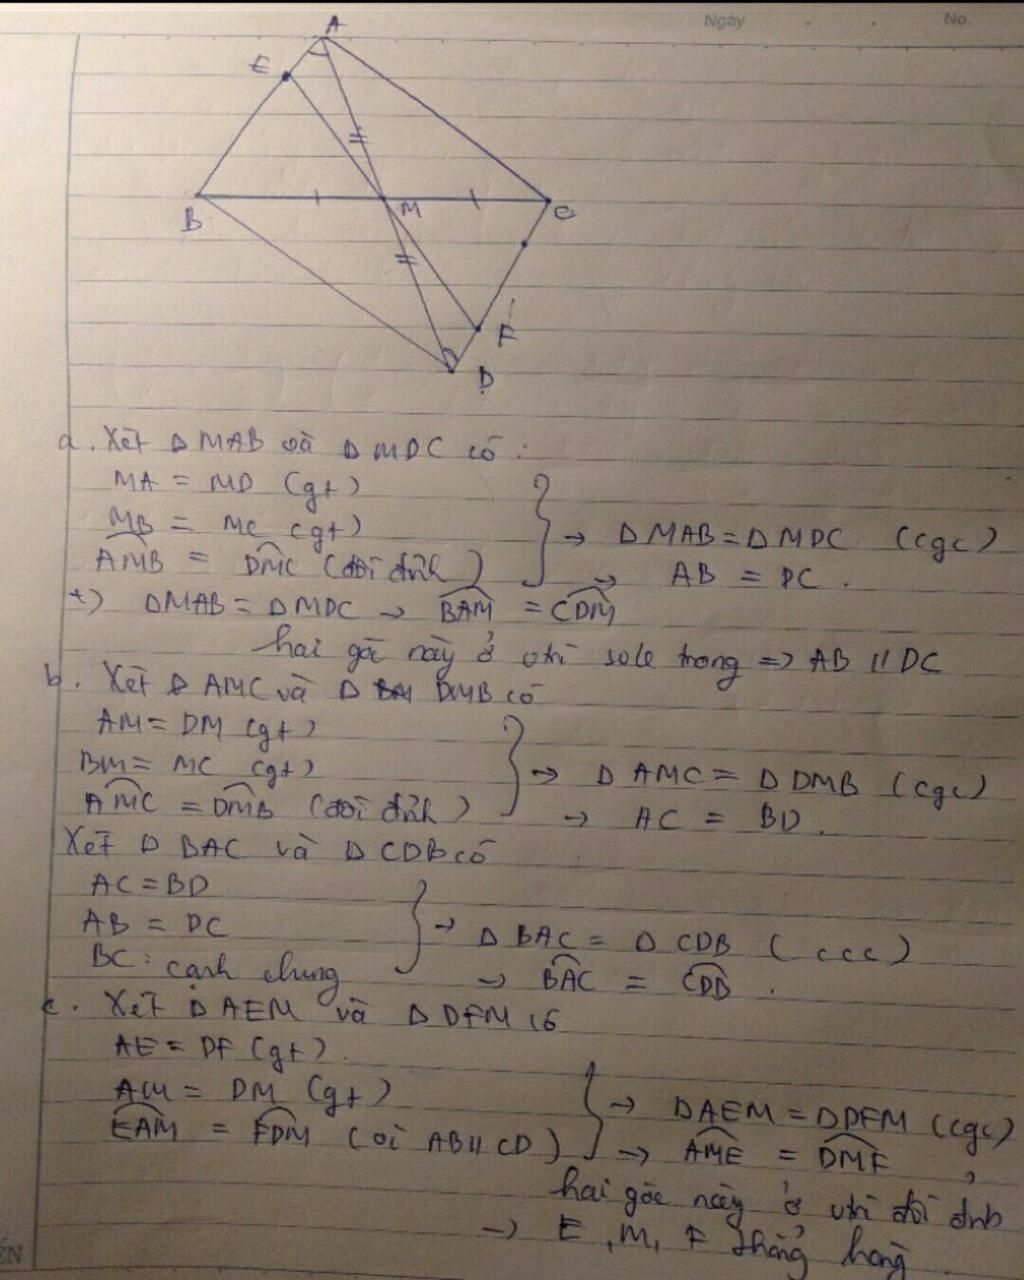 Ngày . . No.
A
E
B
M
C
F
D
a. Xét Δ MAB và Δ MDC có :
MA = MD (gt)
MB = MC (gt)
AMB = DMC (đối đỉnh)
→ Δ MAB = Δ MDC (cgc)
→ AB = DC .
+) ΔMAB = Δ MDC → BAM = CDM
hai góc này ở vtrí sole trong => AB // DC
b. Xét Δ AMC và Δ DMB có
AM = DM (gt)
BM = MC (gt)
AMC = DMB (đối đỉnh)
→ Δ AMC = Δ DMB (cgc)
→ AC = BD .
Xét Δ BAC và Δ CDB có
AC = BD
AB = DC
BC : cạnh chung
→ Δ BAC = Δ CDB ( ccc )
→ BAC = CDB .
c. Xét Δ AEM và Δ DFM có
AE = DF (gt) .
AM = DM (gt)
EAM = FDM ( vì AB // CD )
→ ΔAEM = ΔDFM (cgc)
→ AME = DMF
hai góc này ở vtrí đối đỉnh
→ E , M , F thẳng hàng